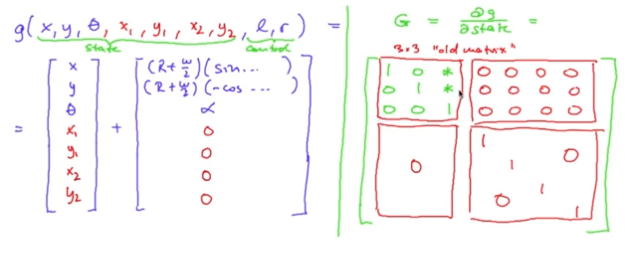 g( x, y, θ, x₁, y₁, x₂, y₂, l, r ) =
state control
= [ x y θ x₁ y₁ x₂ y₂ ] + [ (R + w/2)(sin... ) (R + w/2)(-cos ... ) α 0 0 0 0 ]
G = ∂g / ∂state =
3×3 "old matrix"
1 0 * 0 0 0 0
0 1 * 0 0 0 0
0 0 1 0 0 0 0
0 1 0
1
0 1
1